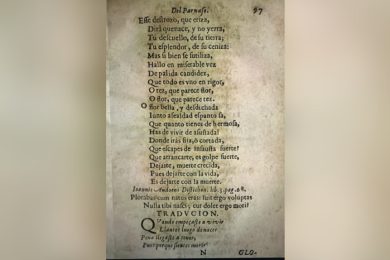 Del Parnaso. 97
Esse destrozo, que eriza,
Dirà que nace, y no yerra,
Tu descuello, de su tierra;
Tu esplendor, de su ceniza:
Mas si bien se sutiliza,
Hallo en miserable vez
De palida candidez,
Que todo es vno en rigor,
O tez, que parece flor,
O flor, que parece tez.
O flor bella, y desdichada
Iunto a fealdad espantosa,
Que quanto tienes de hermosa,
Has de vivir de asustada!
Donde iràs sita, ò cortada,
Que escapes de infausta suerte?
Que arrancarte, es golpe fuerte,
Dejarte, muerte crecida,
Pues dejarte con la vida,
Es dejarte con la muerte.
Ioannis Audoeni Distichon: lib. 3. pag. 68.
Plorabas cum natus eras: fuit ergo voluptas
Nulla tibi nasci; cur dolet ergo mori?
TRADVCION.
Quando empeçaste a vivir
Llantos luego de nacer
Pena llegaste a tener,
Pues porque sientes morir
N GLO-